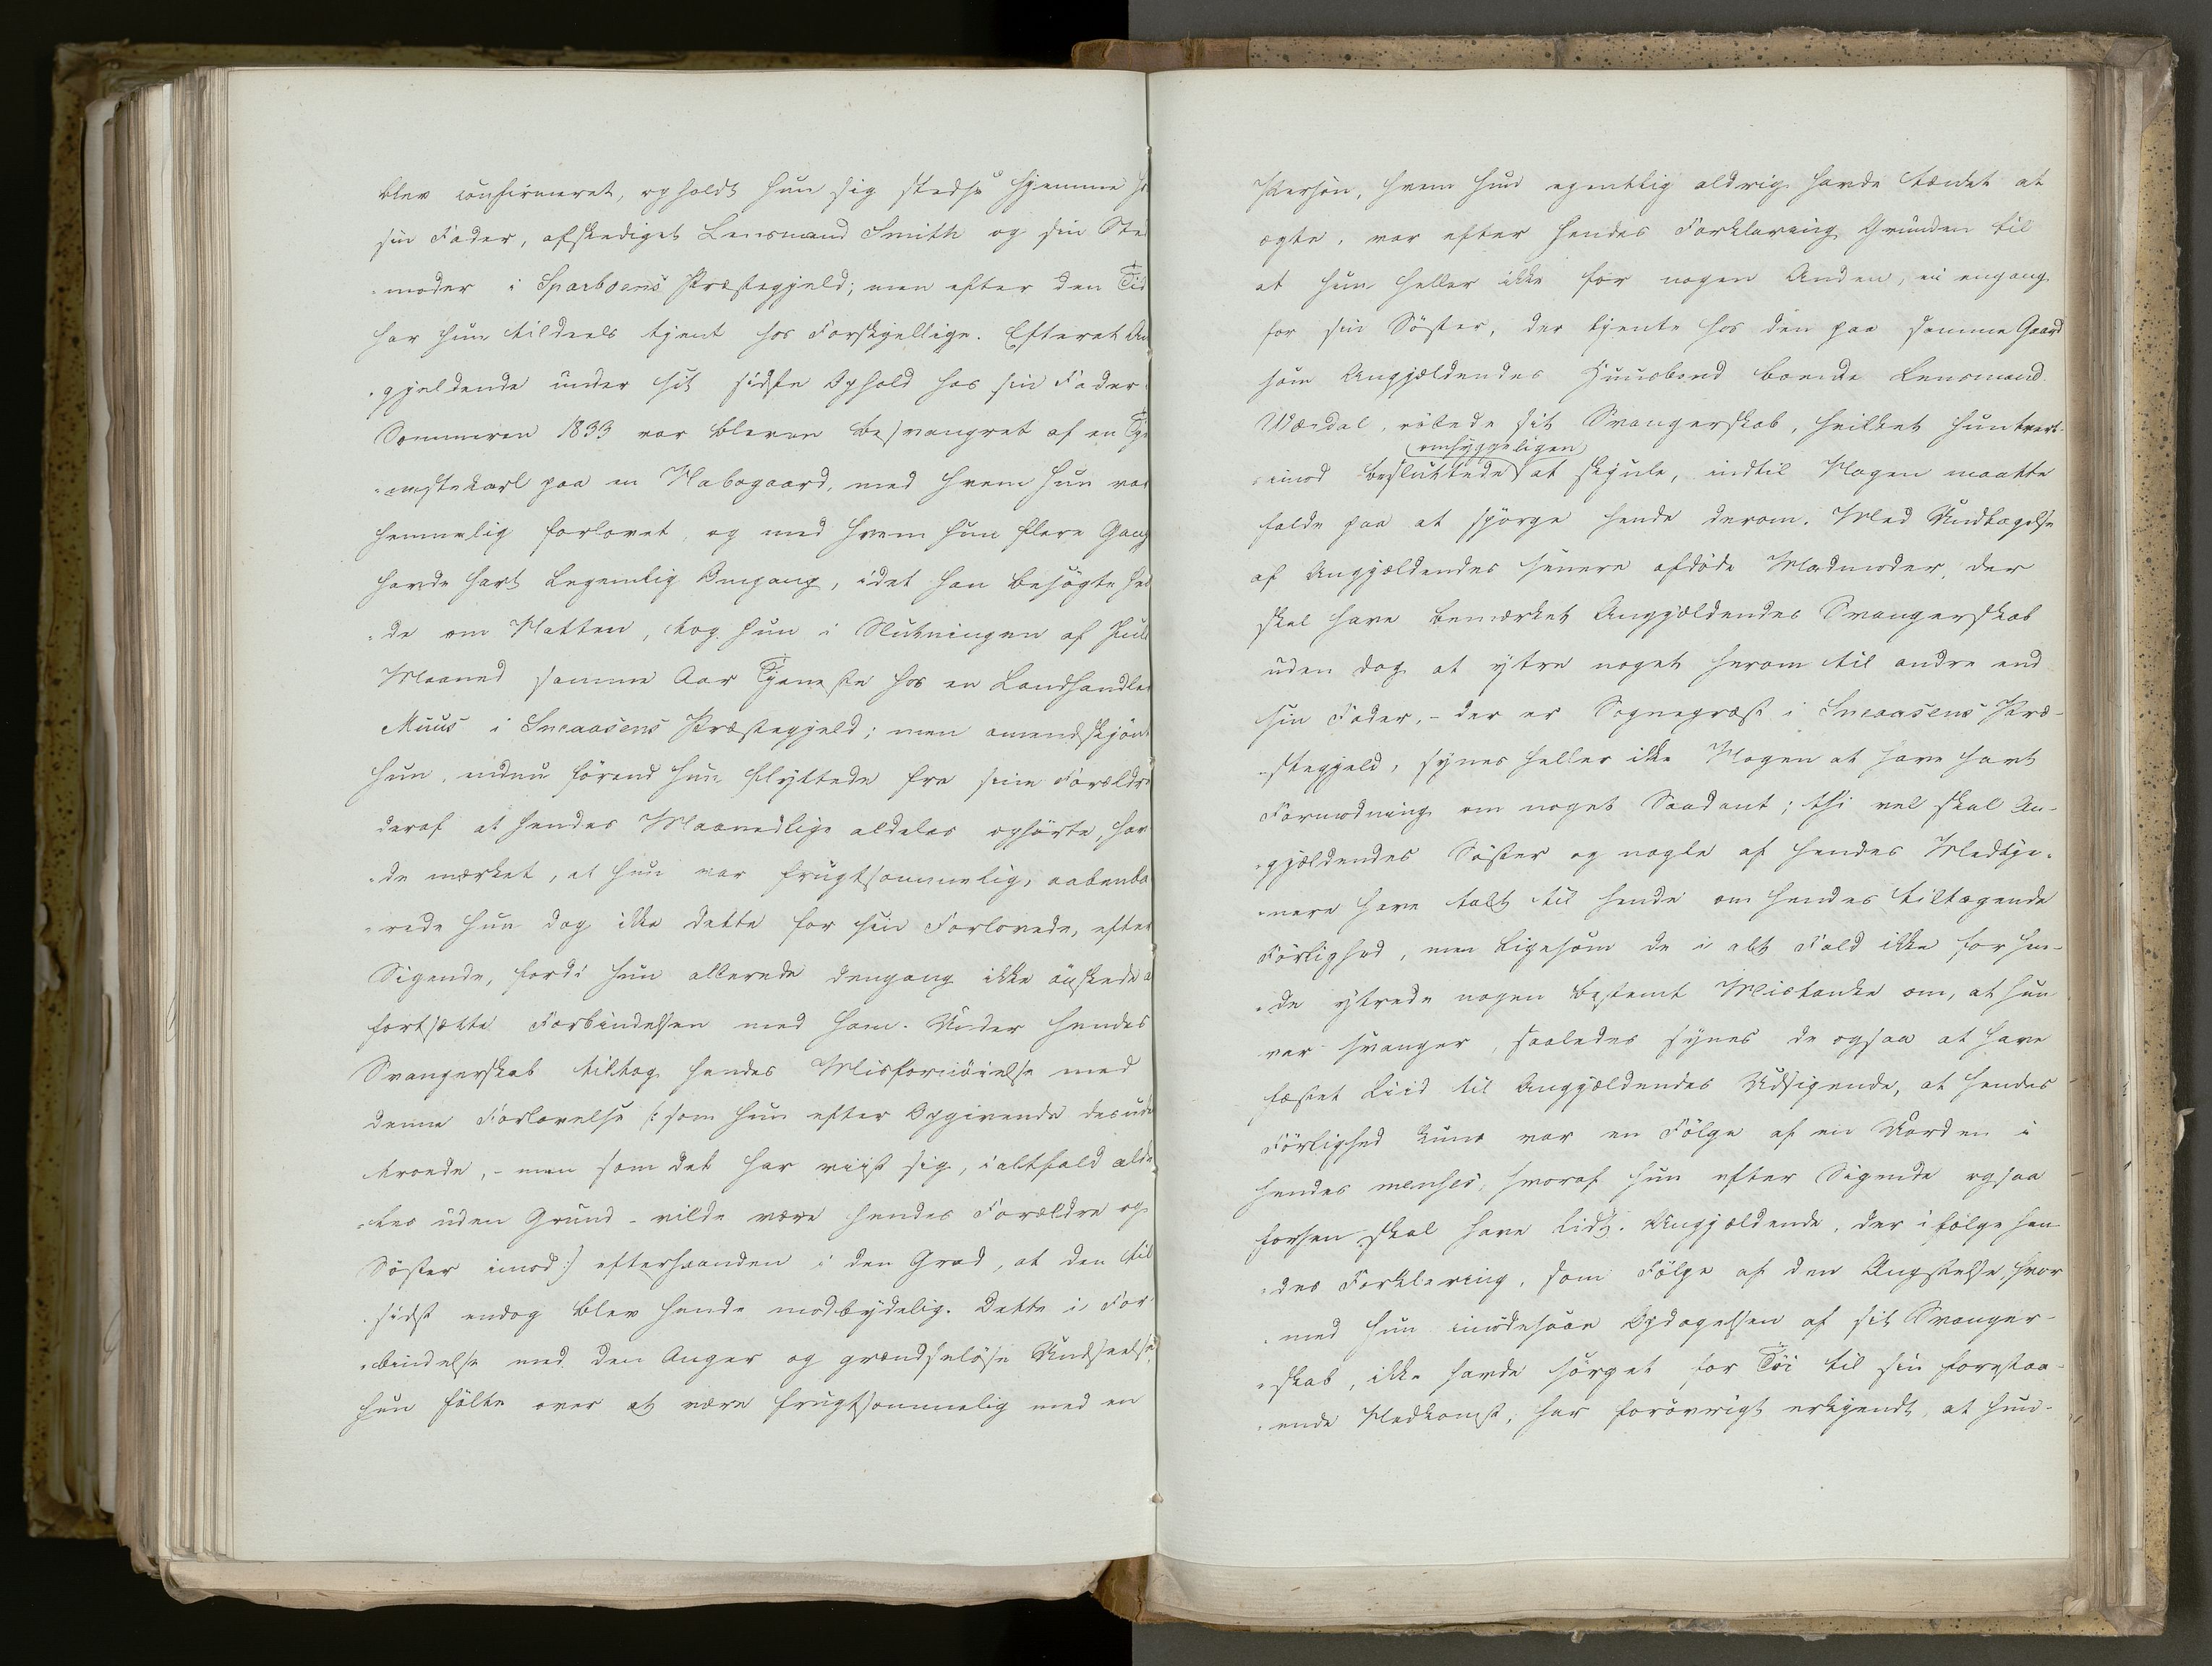 blev confirmeret, opholdt hun sig stedse hjemme ho
sin Fader, afskediget Lensmand Smith og sin Sted
-moder i Sparboens Præstegjeld; men efter den Tid
har hun tildeels tjent hos Forskjellige. Efterat An
-gjeldende under sit sidste Ophold hos sin Fader
Sommeren 1833 var bleven besvangret af en Tje
-nestekarl paa en Nabogaard, med hvem hun var
hemmelig forlovet, og med hvem hun flere Gang
havde havt legemlig Omgang, idet han besøgte hen
-de om Natten, tog hun i Slutningen af Juli
Maaned samme Aar Tjeneste hos en Landhandler
Muus i Sneaasens Præstegjeld; men omendskjønt
hun, endnu førend hun flyttede fra sine Forældre
deraf at hendes Maanedlige aldeles ophørte, hav
-de mærket, at hun var frugtsommelig, aabenba
-rede hun dog ikke dette for sin Forlovede, efter
Sigende, fordi hun allerede dengang ikke ønskede a
fortsætte Forbindelsen med ham. Under hendes
Svangerskab tiltog hendes Misfornøielse med
denne Forlovelse (: som hun efter Opgivende desude
troede, - men som det har viist sig, ialtfald alde
-les uden Grund - vilde være hendes Forældre og
Søster imod :) efterhaanden i den Grad, at den til
sidst endog blev hende modbydelig. Dette i For-
-bindelse med den Anger og grændseløse Undseelse
hun følte over at være frugtsommelig med en
Person, hvem hun egentlig aldrig havde tænkt at
ægte, var efter hendes Forklaring Grunden til
at hun heller ikke for nogen Anden, ei engang
for sin Søster, der tjente hos den paa samme Gaard
som Angjældendes Huusbond boende Lensmand
Wærdal, röbede sit Svangerskab, hvilket hun tvert-
(omhyggeligen)
-imod besluttede at skjule, indtil Nogen maatte
falde paa at spørge hende derom. Med Undtagelse
af Angjældendes senere afdøde Madmoder, der
skal have bemærket Angjældendes Svangerskab
uden dog at yttre noget herom til andre end
sin Fader, - der er Sognepræst i Sneaasens Præ-
-stegjeld, synes heller ikke Nogen at have havt
Formodning om noget Saadant; thi vel skal An-
-gjældendes Søster og nogle af hendes Medtje-
-nere have talt til hende om hendes tiltagende
Førlighed, men ligesom de i alt Fald ikke for hen-
-de yttrede nogen bestemt Mistanke om, at hun
var svanger, saaledes synes de ogsaa at have
fæstet Liid til Angjældendes Udsigende, at hendes
Førlighed kuns var en Følge af en Uorden i
hendes menses, hvoraf hun efter Sigende ogsaa
forhen skal have lidt. Angjældende, der ifølge hen-
-des Forklaring, som Følge af den Angstelse, hvor
-med hun imødesaae Opdagelsen af sit Svanger-
-skab, ikke havde sørget for Tøi til sin forestaa-
-ende Nedkomst, har forøvrigt erkjendt, at hun